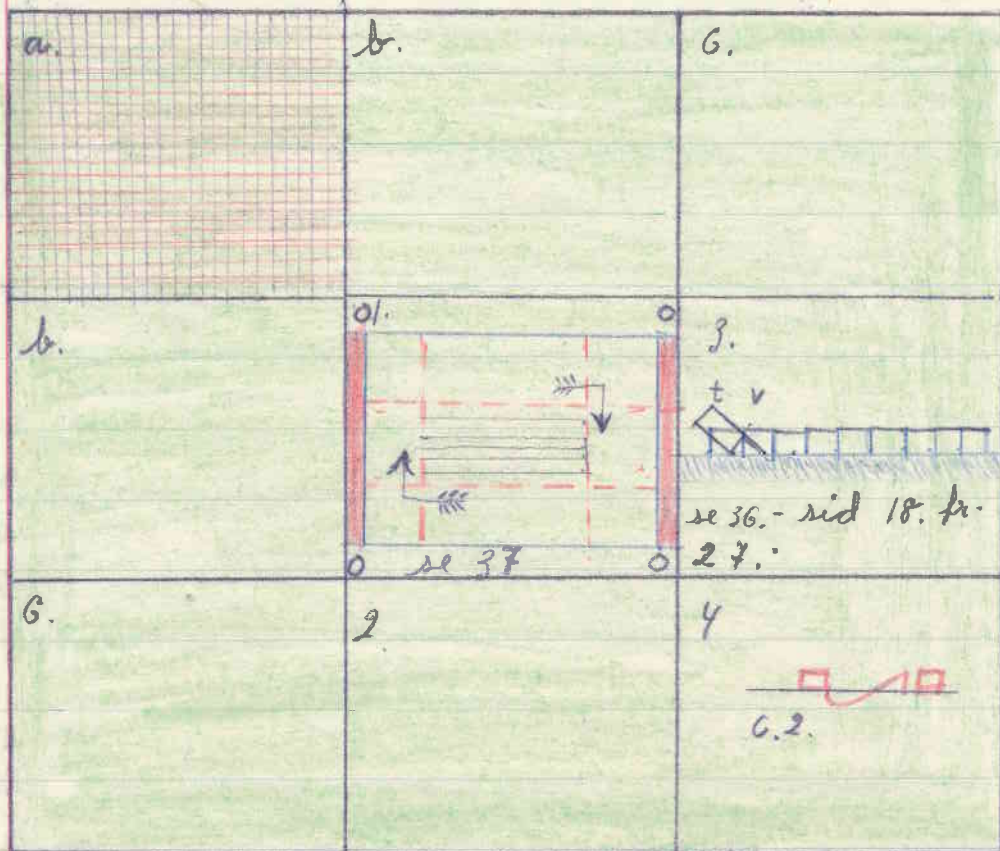 a.
b.
6.
b.
01.
0
0
se 37
0
3.
t v
se 36. - sid 18. fr.
27.
6.
2
4
6.2.